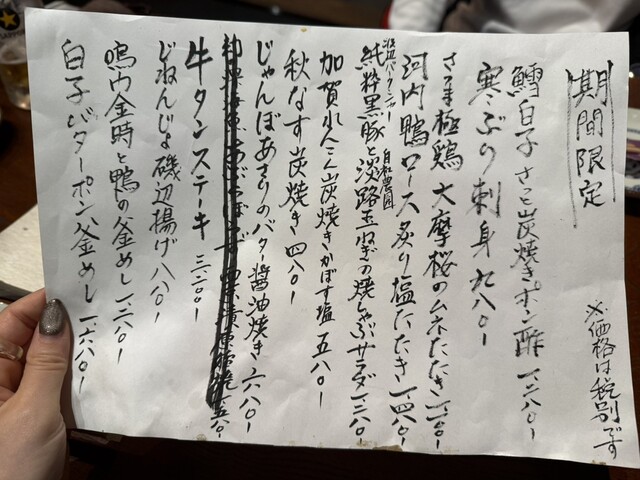 期間限定
※価格は税別です
鱈白子 さっと炭焼きポン酢 一、二八〇-
寒ぶり刺身 九八〇-
さつま極鶏 大摩桜のムネたたき 一、一八〇-
河内鴨ロース炙り塩たたき 一、四八〇-
純粋黒豚と淡路玉ねぎの焼しゃぶサラダ 一、二八〇-
加賀れんこん炭焼き かぼす塩 五八〇-
秋なす炭焼き 四八〇-
じゃんぼあさりのバター醤油焼き 六八〇-
牛タンステーキ
じねんじょ磯辺揚げ 八八〇-
鳴門金時と鴨の釜めし 一、二八〇-
白子バターポン釜めし 一、六八〇-